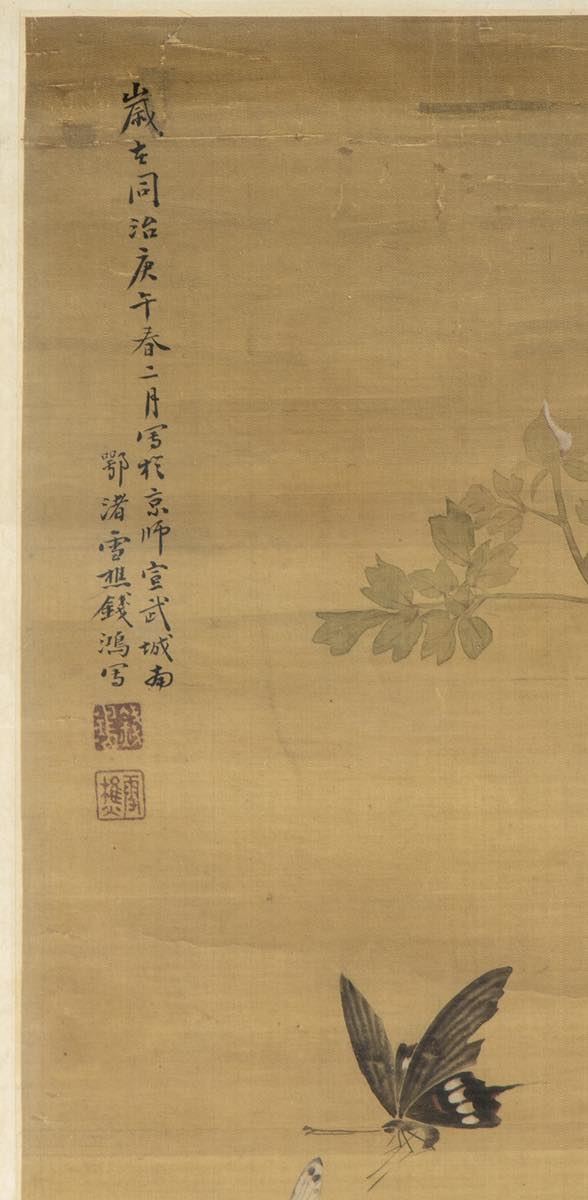 歲在同治庚午春二月寫於京師宣武城南
鄂渚雪樵錢鴻写
錢鴻
雪樵